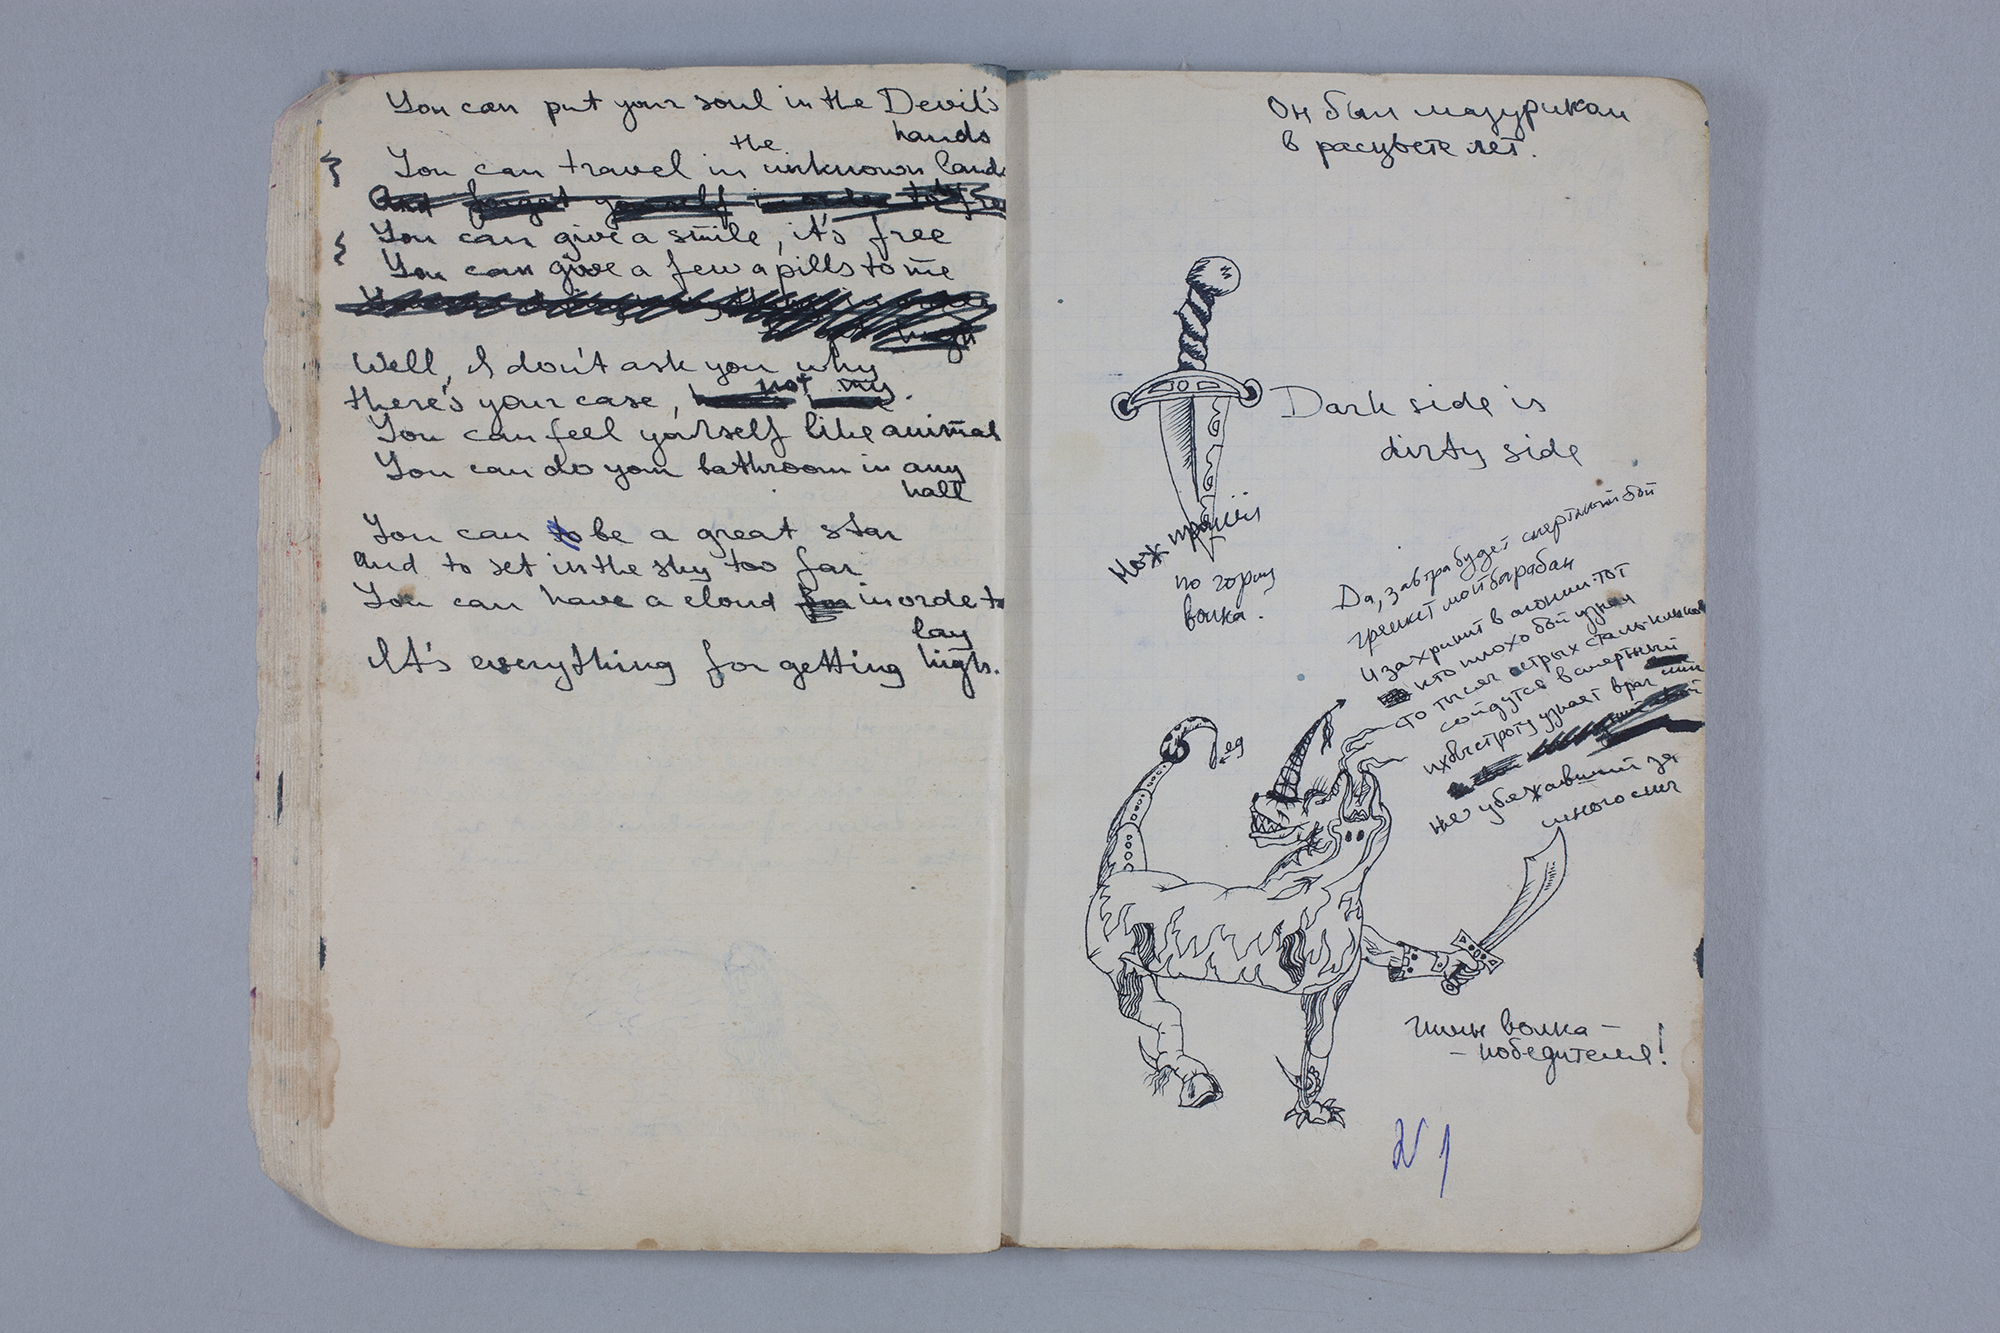 You can put your soul in the Devil's
hands
the
You can travel in unknown lands
And forget yourself in order to
You can give a smile, it's free
You can give a few a pills to me
high
Well, I don't ask you why
there's your case, not my.
You can feel yourself like animal
You can do your bathroom in any
hall
You can to be a great star
And to set in the sky too far
You can have a cloud for in orde to
lay
It's everything for getting high.
Он был мазурикам
в расцвете лет.
Dark side is
dirty side
Нож
по горлу
волка.
Да, завтра будет смертный бой
гремит мой барабан
И захрипит в агонии тот
кто плохо бой узнал
Сто тысяч острых сталь-клыков
сойдутся в смертный
их быстроту узнает враг
Не убежавший за
много миль
яд
Гимн волка-
-победителя!
N 1